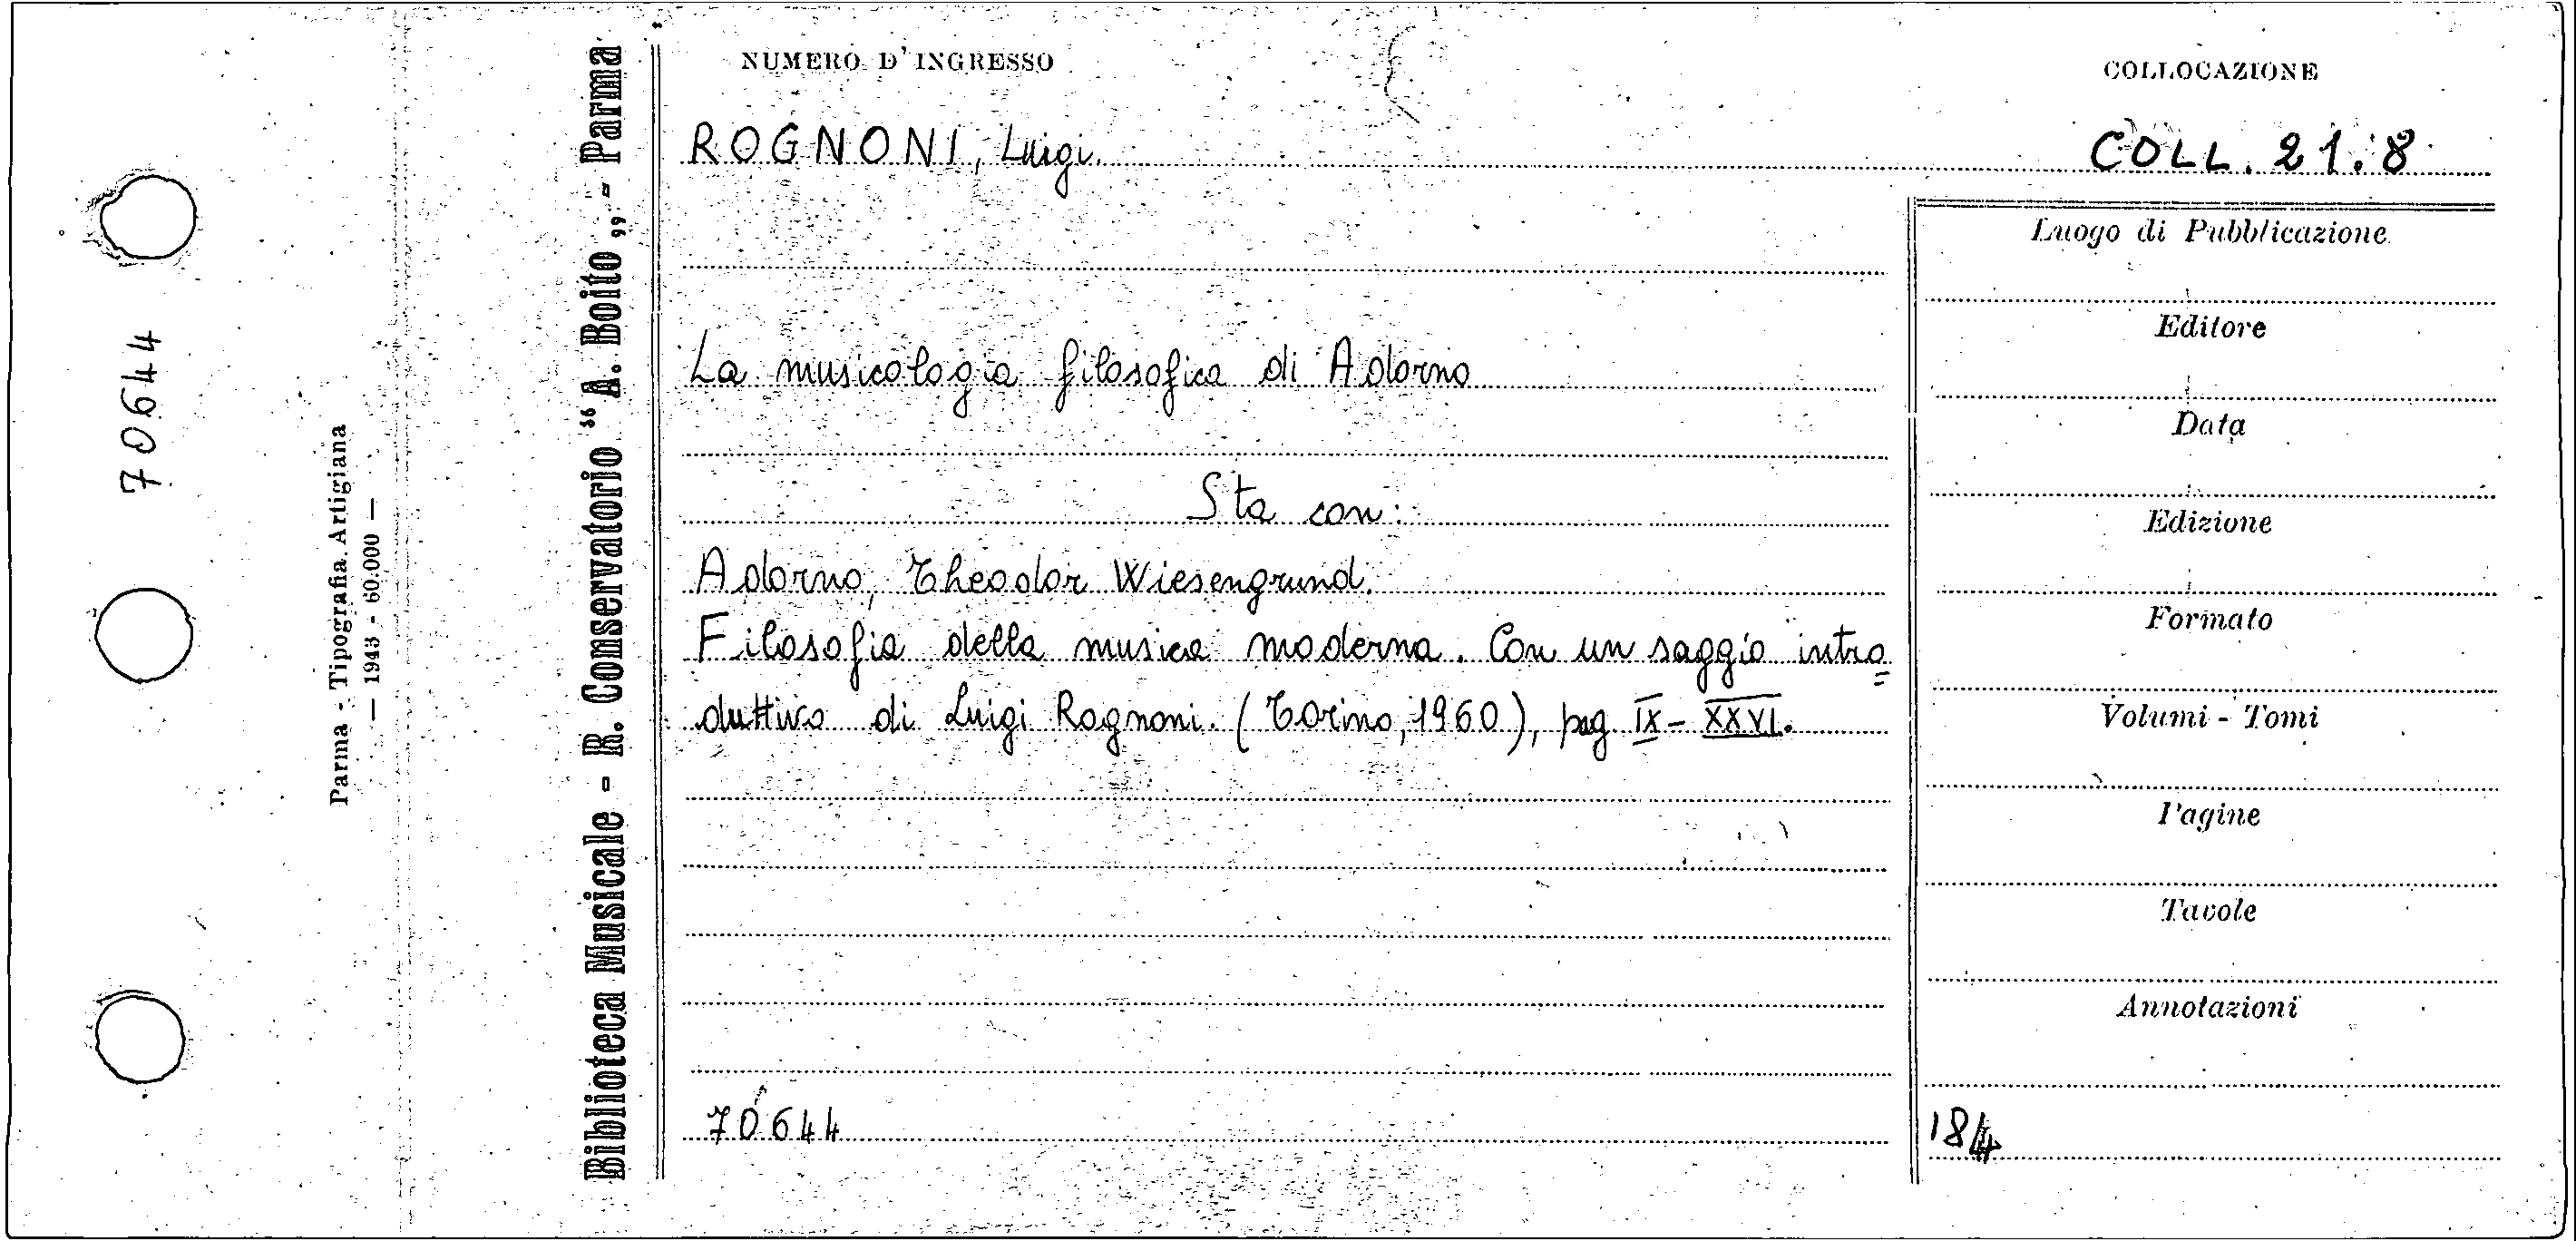 70644
Parma - Tipografia Artigiana
— 1943 - 60.000 —
Biblioteca Musicale - R. Conservatorio “ A. Boito „ - Parma
NUMERO D'INGRESSO
COLLOCAZIONE
ROGNONI, Luigi.
COLL. 21.8
La musicologia filosofica di Adorno
Sta con:
Adorno, Theodor Wiesengrund.
Filosofia della musica moderna. Con un saggio intro=
duttivo di Luigi Rognoni. (Torino, 1960), pag. IX - XXVI.
70644
Luogo di Pubblicazione
Editore
Data
Edizione
Formato
Volumi - Tomi
Pagine
Tavole
Annotazioni
184